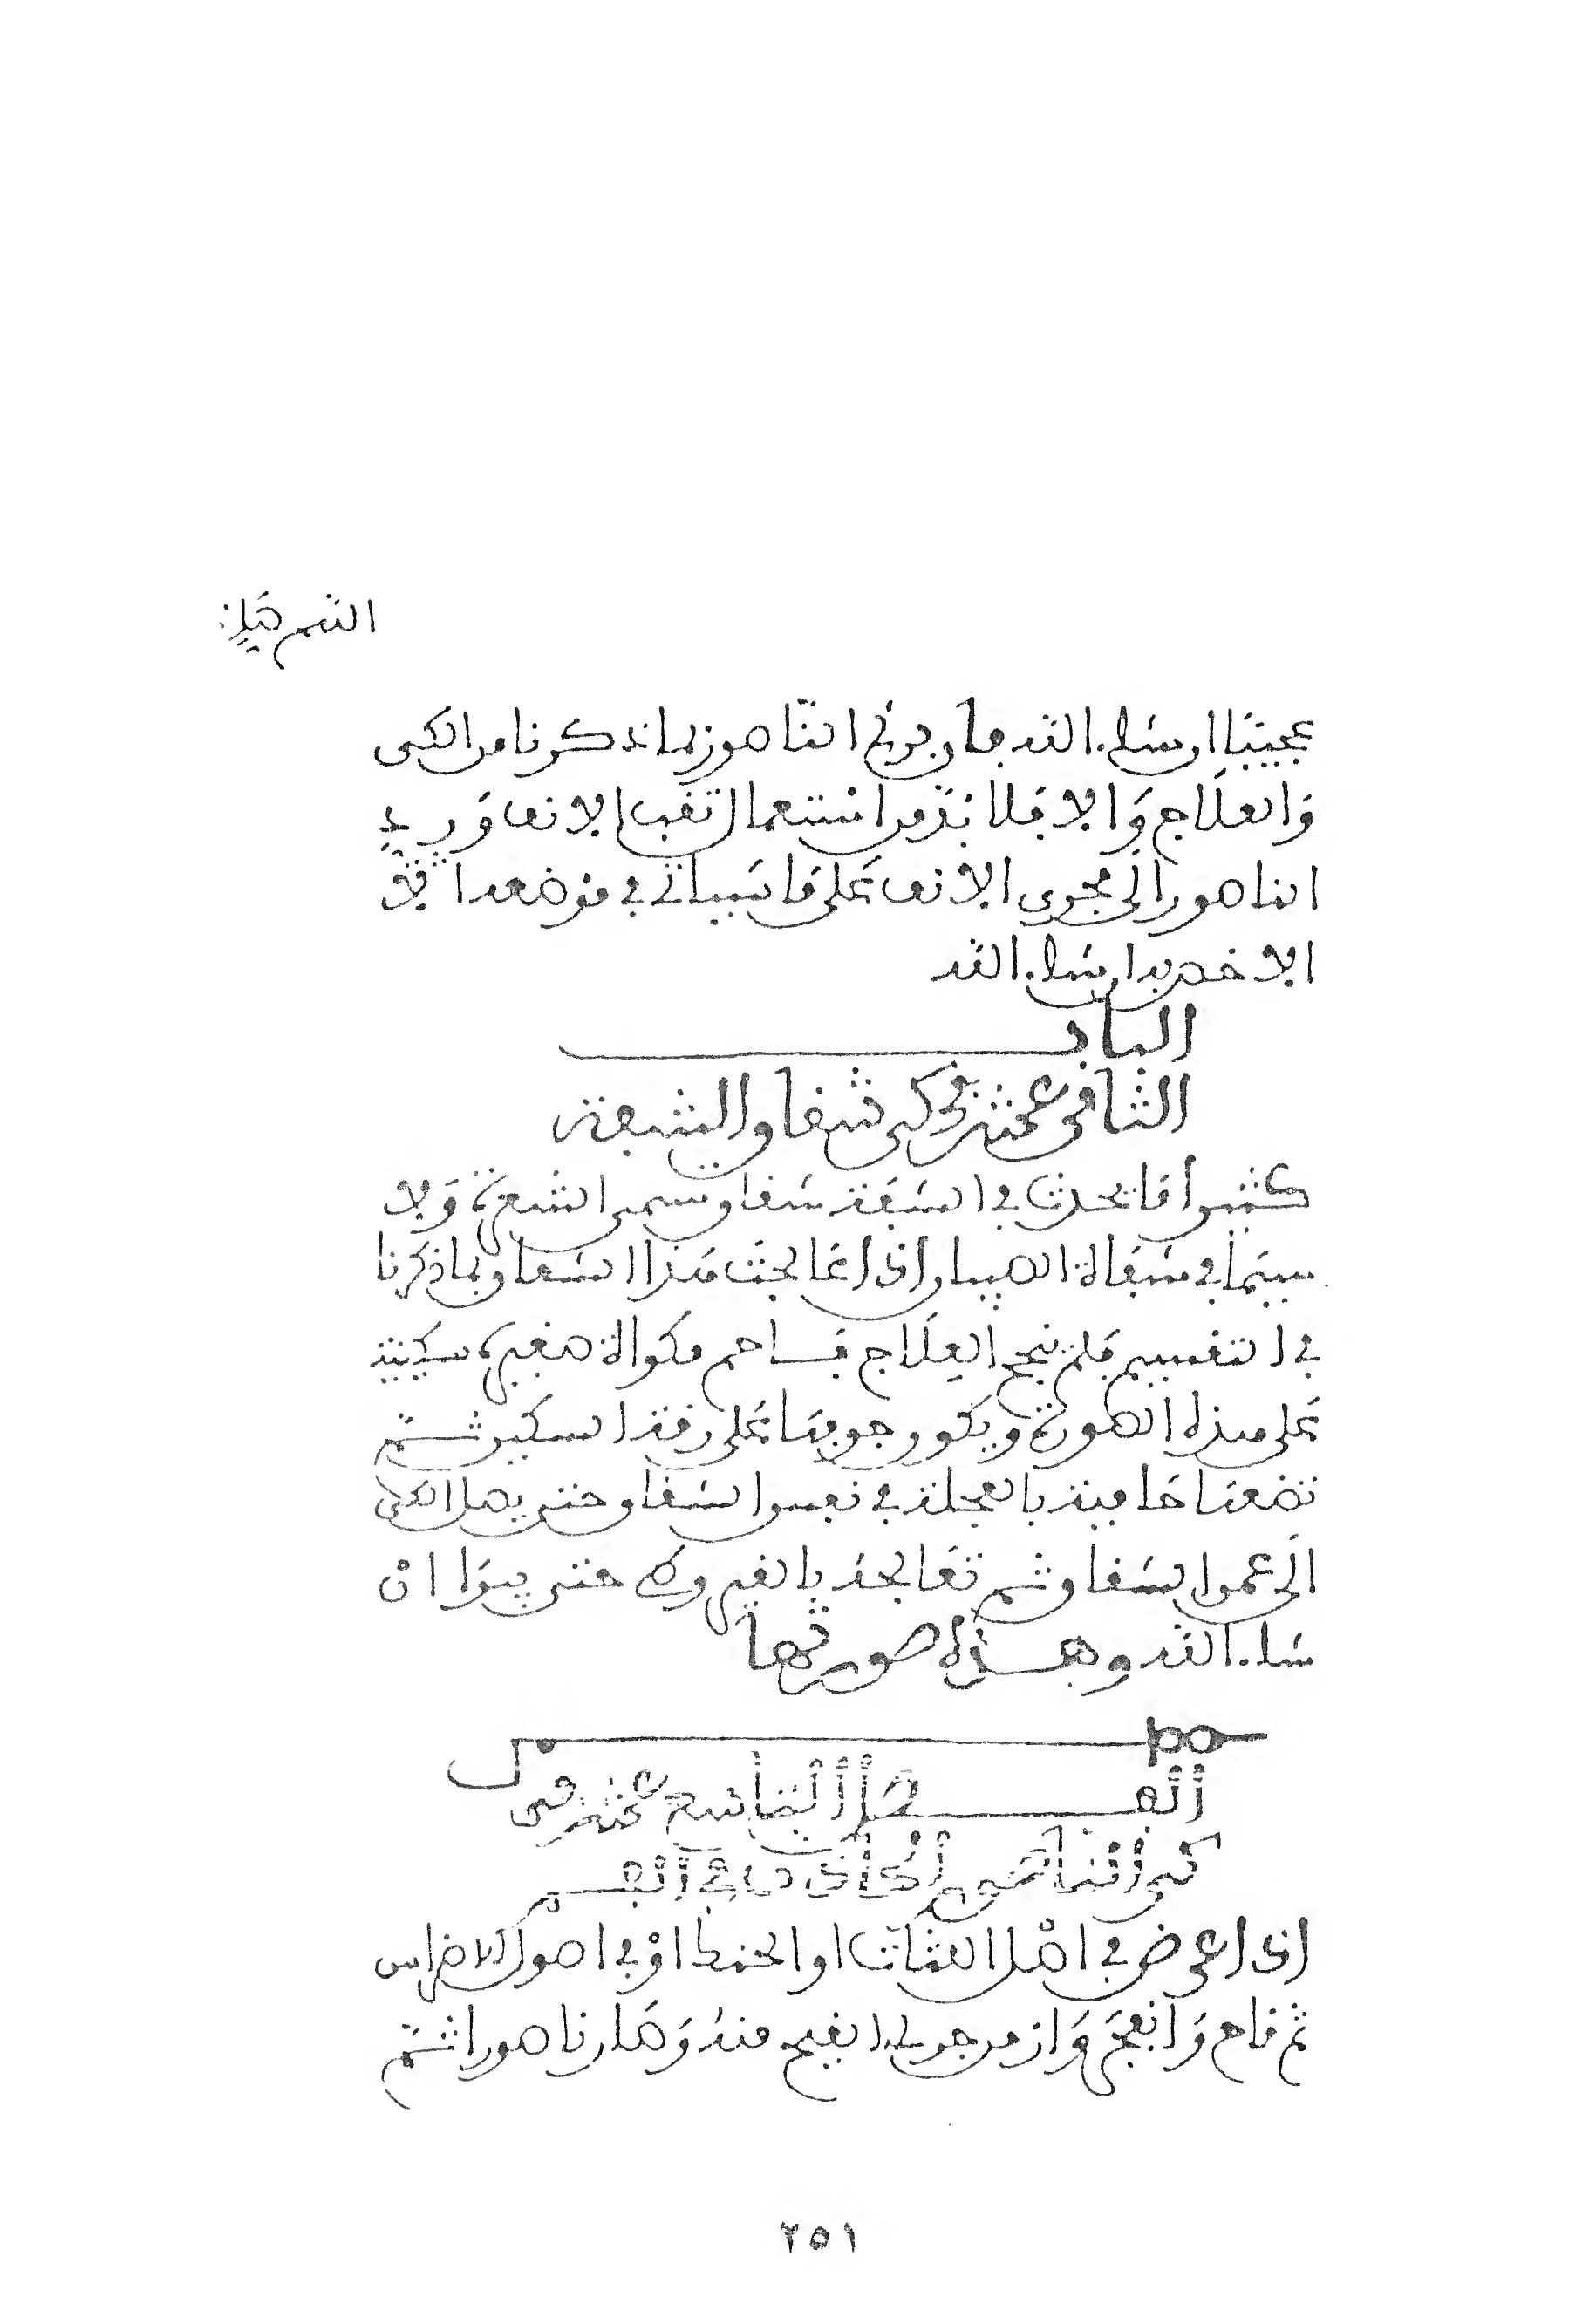 عجيبا ان شاء الله فان برئ الناصور بما ذكرنا من الكي
والعلاج والا فلا بد من استعمال ثقب الانف ورد
الناصور الى مجرى الانف على ما سياتي في موضعه
الاخص به ان شاء الله
الباب
الثاني عشر في كي شقاق الشفة
كثيرا ما يحدث في الشفة شقاق يسمى الشعرة ولا
سيما في شفاة الصبيان اذا عالجت هذا الشقاق بما ذكرنا
في التقسيم فلم ينجح العلاج فاحم مكواة صغيرة سكينية
على هذه الصورة ويكون جوفها على رقة السكين ثم
تضعها حامية بالعجلة في نفس الشقاق حتى يصل الكي
الى عمق الشقاق ثم تعالجه بالقيروطي حتى يبرا ان
شاء الله وهذه صورتها
الفصل التاسع عشر في
كي الناصور الحادث في الفم
اذا عرض في اصل اللثات او الحنك او في اصول الاضراس
ثم قاح وانفجر وازمن جرى القيح منه وصار ناصورا ثم
٢٥١